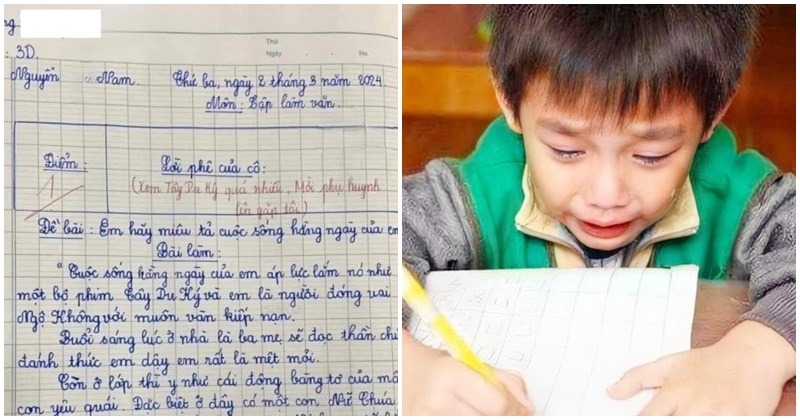 : 3D.
Nguyễn Nam. Thứ ba, ngày 2 tháng 3 năm 2024
Môn: Tập làm văn.
Thứ
Ngày No.
Điểm: Lời phê của cô:
1 (Xem Tây Du Ký quá nhiều, Mời phụ huynh
lên gặp tôi)
Đề bài: Em hãy miêu tả cuộc sống hằng ngày của em
Bài làm:
"Cuộc sống hằng ngày của em áp lực lắm nó như
một bộ phim Tây Du Ký và em là người đóng vai
Ngộ Không với muôn vàn kiếp nạn.
Buổi sáng lúc ở nhà là ba mẹ sẽ đọc thần chú
đánh thức em dậy em rất là mệt mỏi.
Còn ở lớp thì y như cái động bàng tơ của mấ
con yêu quái. Đặc biệt ở đây có một con Nữ Chúa